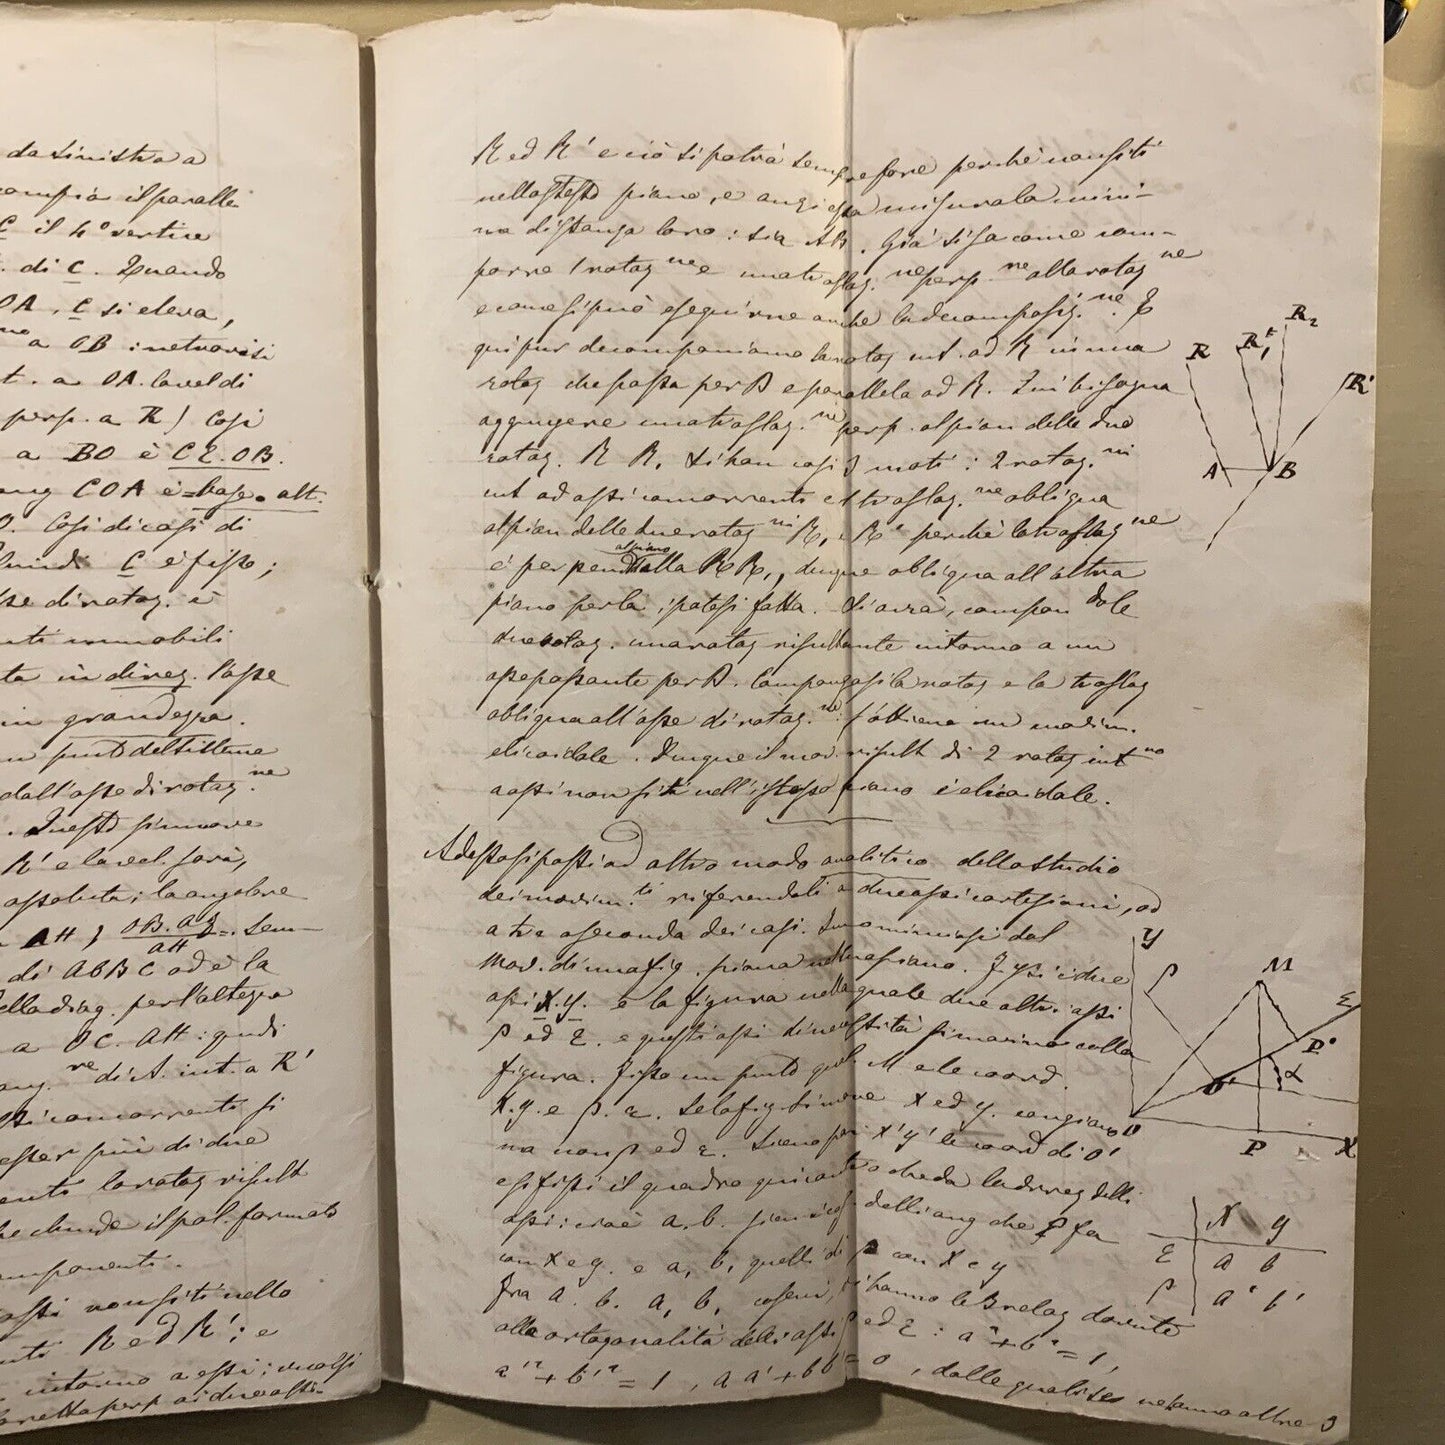 da sinistra a
compia il paralle
C il 4° vertice
di C. Quando
OA, C si eleva,
a OB : netrovisi
t. a OA. la vel di
perp. a R) Così
a BO è C2.OB.
ang COA è = base. alt.
O. Così dicasi di
Quindi C è fisso;
sse di rotaz. è
nti immobili
ta in direz. l'asse
in grandezza.
un punto del sistema
dall'asse di rotaz.ne
. Questo si muove
R' e la vel. sarà,
assoluta; la angolare
AH, OB.a2 =. Sem-
aH
di AbBC od è la
della diag. per l'altezza
a OC. AH : quindi
ang. re di A. int. a R'
ssi concorrenti si
esser più di due
enti la rotaz risult
he chiude il pol. formato
omponenti.
assi non siti nello
nti R ed R'; e
intorno a essi; vuolsi
la retta perp ai due assi
R ed R' e ciò si potrà sempre fare perchè non siti
nello stesso piano, e anzi essa misura la mini-
ma distanza loro : sia AB. Già si sa come com-
porre 1 rotaz ne e una traslaz. ne perp. re alla rotaz ne
e come si può eseguirne anche la decomposiz. ne. E
qui pur decomponiamo la rotaz int. ad R in una
rotaz che passa per B e parallela ad R. Quì bisogna
aggiugere una traslaz. ne perp. al pian delle due
rotaz. R R, Si han così 3 moti : 2 rotaz. ni
int ad assi concorrenti e 1 traslaz. ne obliqua
al pian delle due rotaz ni R, R' perchè la traslaz ne
al piano
è perpend alla R R,, dunque obliqua all'altro
piano per la ipotesi fatta. Si avrà, compondole
due rotaz. una rotaz risultante intorno a un
asse passante per B. Compongasi la rotaz e la traslaz
obliqua all'asse di rotaz. ne : s'ottiene un movim.
elicoidale. Dunque il mov. risult di 2 rotaz int no
a assi non siti nell'istesso piano è elicoidale.
R R,' R2 R' A B
Adesso si passi ad altro modo analitico dello studio
dei movim. ti riferendoli a due assi cartesiani, od
a tre a seconda dei casi. Incominciasi dal
Mov. di una fig. piana nel suo piano.
assi X.Y. e la figura nella quale due altri assi
ρ ed ε. e questi assi di necessità si movino colla
figura. Fisso un punto qual. M e le coord.
X.y. e ρ. ε. Se la fig. si move X ed y. cangiano
ma non ρ ed ε. Sieno poi x'y' le coord di O'
e si fissi il quadro qui accanto che da la direz delli
assi : cioè a.b. sieno i cos delli ang che ξ fa
con X e y. e a, b, quelli di ρ con X e y
Fra a. b. a, b, coseni, si hanno le 3 relaz dovute
alla ortogonalità delli assi ρ ed ε : a² + b² = 1,
a'² + b'² = 1, a a' + b b' = 0, dalle quali se ne hanno altre 3
Y ρ M ε P' α O' O P X
X y
ε a b
ρ a' b'